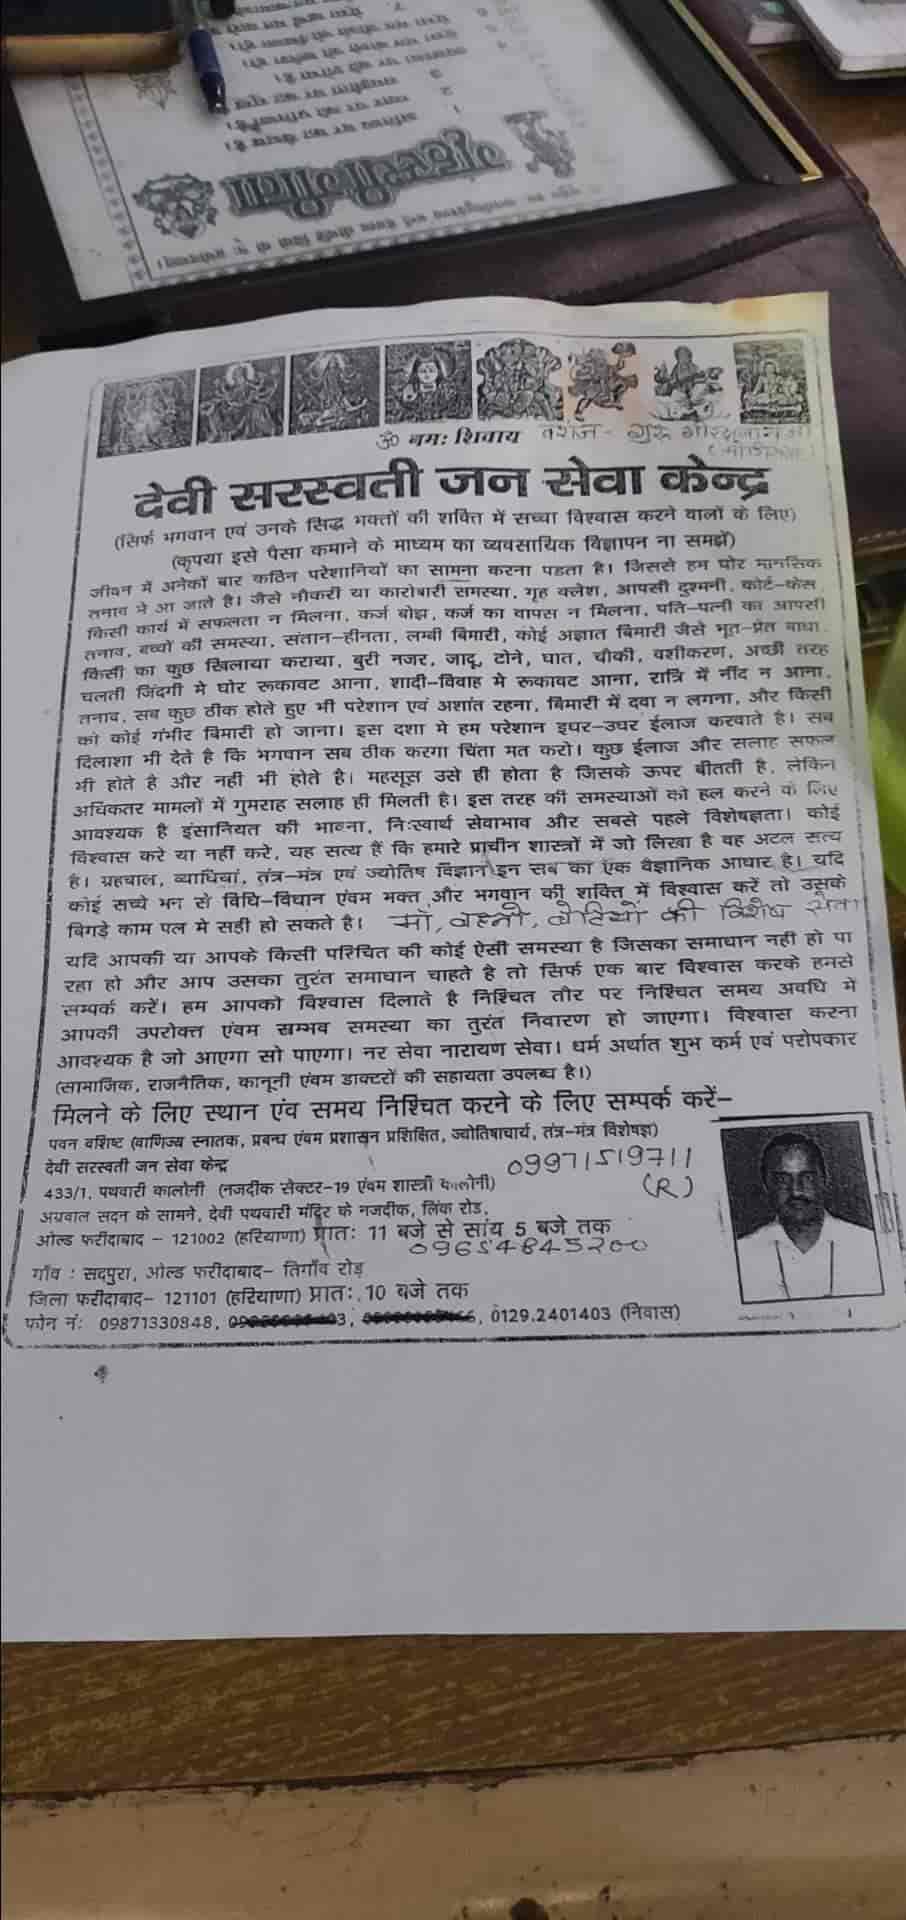 ॐ नमः शिवाय वंशज - गुरू गोरखनाथ जी
देवी सरस्वती जन सेवा केन्द्र
(सिर्फ भगवान एवं उनके सिद्ध भक्तों की शक्ति में सच्चा विश्वास करने वालों के लिए)
(कृपया इसे पैसा कमाने के माध्यम का व्यवसायिक विज्ञापन ना समझें)
जीवन में अनेकों बार कठिन परेशानियों का सामना करना पडता है। जिससे हम घोर मानसिक
तनाव ने आ जाते है। जैसे नौकरी या कारोबारी समस्या, गृह क्लेश, आपसी दुश्मनी, कोर्ट-केस,
किसी कार्य में सफलता न मिलना, कर्ज बोझ, कर्ज का वापस न मिलना, पति-पत्नी का आपसी
तनाव, बच्चों की समस्या, संतान-हीनता, लम्बी बिमारी, कोई अज्ञात बिमारी जैसे भूत-प्रेत बाधा,
किसी का कुछ खिलाया कराया, बुरी नजर, जादू, टोने, घात, चौकी, वशीकरण, अच्छी तरह
चलती जिंदगी मे घोर रूकावट आना, शादी-विवाह मे रूकावट आना, रात्रि में नींद न आना,
तनाव, सब कुछ ठीक होते हुए भी परेशान एवं अशांत रहना, बिमारी में दवा न लगना, और किसी
को कोई गंभीर बिमारी हो जाना। इस दशा मे हम परेशान इधर-उधर ईलाज करवाते है। सब
दिलाशा भी देते है कि भगवान सब ठीक करगा चिंता मत करो। कुछ ईलाज और सलाह सफल
भी होते है और नही भी होते है। महसूस उसे ही होता है जिसके ऊपर बीतती है, लेकिन
अधिकतर मामलों में गुमराह सलाह ही मिलती है। इस तरह की समस्याओं को हल करने के लिए
आवश्यक है इंसानियत की भावना, निःस्वार्थ सेवाभाव और सबसे पहले विशेषज्ञता। कोई
विश्वास करे या नहीं करे, यह सत्य हैं कि हमारे प्राचीन शास्त्रों में जो लिखा है वह अटल सत्य
है। ग्रहचाल, व्याधियां, तंत्र-मंत्र एवं ज्योतिष विज्ञान इन सब का एक वैज्ञानिक आधार है। यदि
कोई सच्चे मन से विधि-विधान एंवम भक्त और भगवान की शक्ति में विश्वास करें तो उसके
बिगड़े काम पल मे सही हो सकते है। माँ, बहनो, बेटियों की विशेष सेवा
यदि आपकी या आपके किसी परिचित की कोई ऐसी समस्या है जिसका समाधान नही हो पा
रहा हो और आप उसका तुरंत समाधान चाहते है तो सिर्फ एक बार विश्वास करके हमसे
सम्पर्क करें। हम आपको विश्वास दिलाते है निश्चित तौर पर निश्चित समय अवधि में
आपकी उपरोक्त एंवम सम्भव समस्या का तुरंत निवारण हो जाएगा। विश्वास करना
आवश्यक है जो आएगा सो पाएगा। नर सेवा नारायण सेवा। धर्म अर्थात शुभ कर्म एवं परोपकार
(सामाजिक, राजनैतिक, कानूनी एंवम डाक्टरों की सहायता उपलब्ध है।)
मिलने के लिए स्थान एंव समय निश्चित करने के लिए सम्पर्क करें-
पवन वशिष्ट (वाणिज्य स्नातक, प्रबन्ध एंवम प्रशासन प्रशिक्षित, ज्योतिषाचार्य, तंत्र-मंत्र विशेषज्ञ)
देवी सरस्वती जन सेवा केन्द्र 09971519711
433/1, पथवारी कालोनी (नजदीक सेक्टर-19 एंवम शास्त्री कालोनी) (R)
अग्रवाल सदन के सामने, देवी पथवारी मंदिर के नजदीक, लिंक रोड,
ओल्ड फरीदाबाद - 121002 (हरियाणा) प्रातः 11 बजे से सांय 5 बजे तक
09654845200
गाँव : सदपुरा, ओल्ड फरीदाबाद- तिगाँव रोड़
जिला फरीदाबाद- 121101 (हरियाणा) प्रातः 10 बजे तक
फोन नंः 09871330848, 0129.2401403 (निवास)